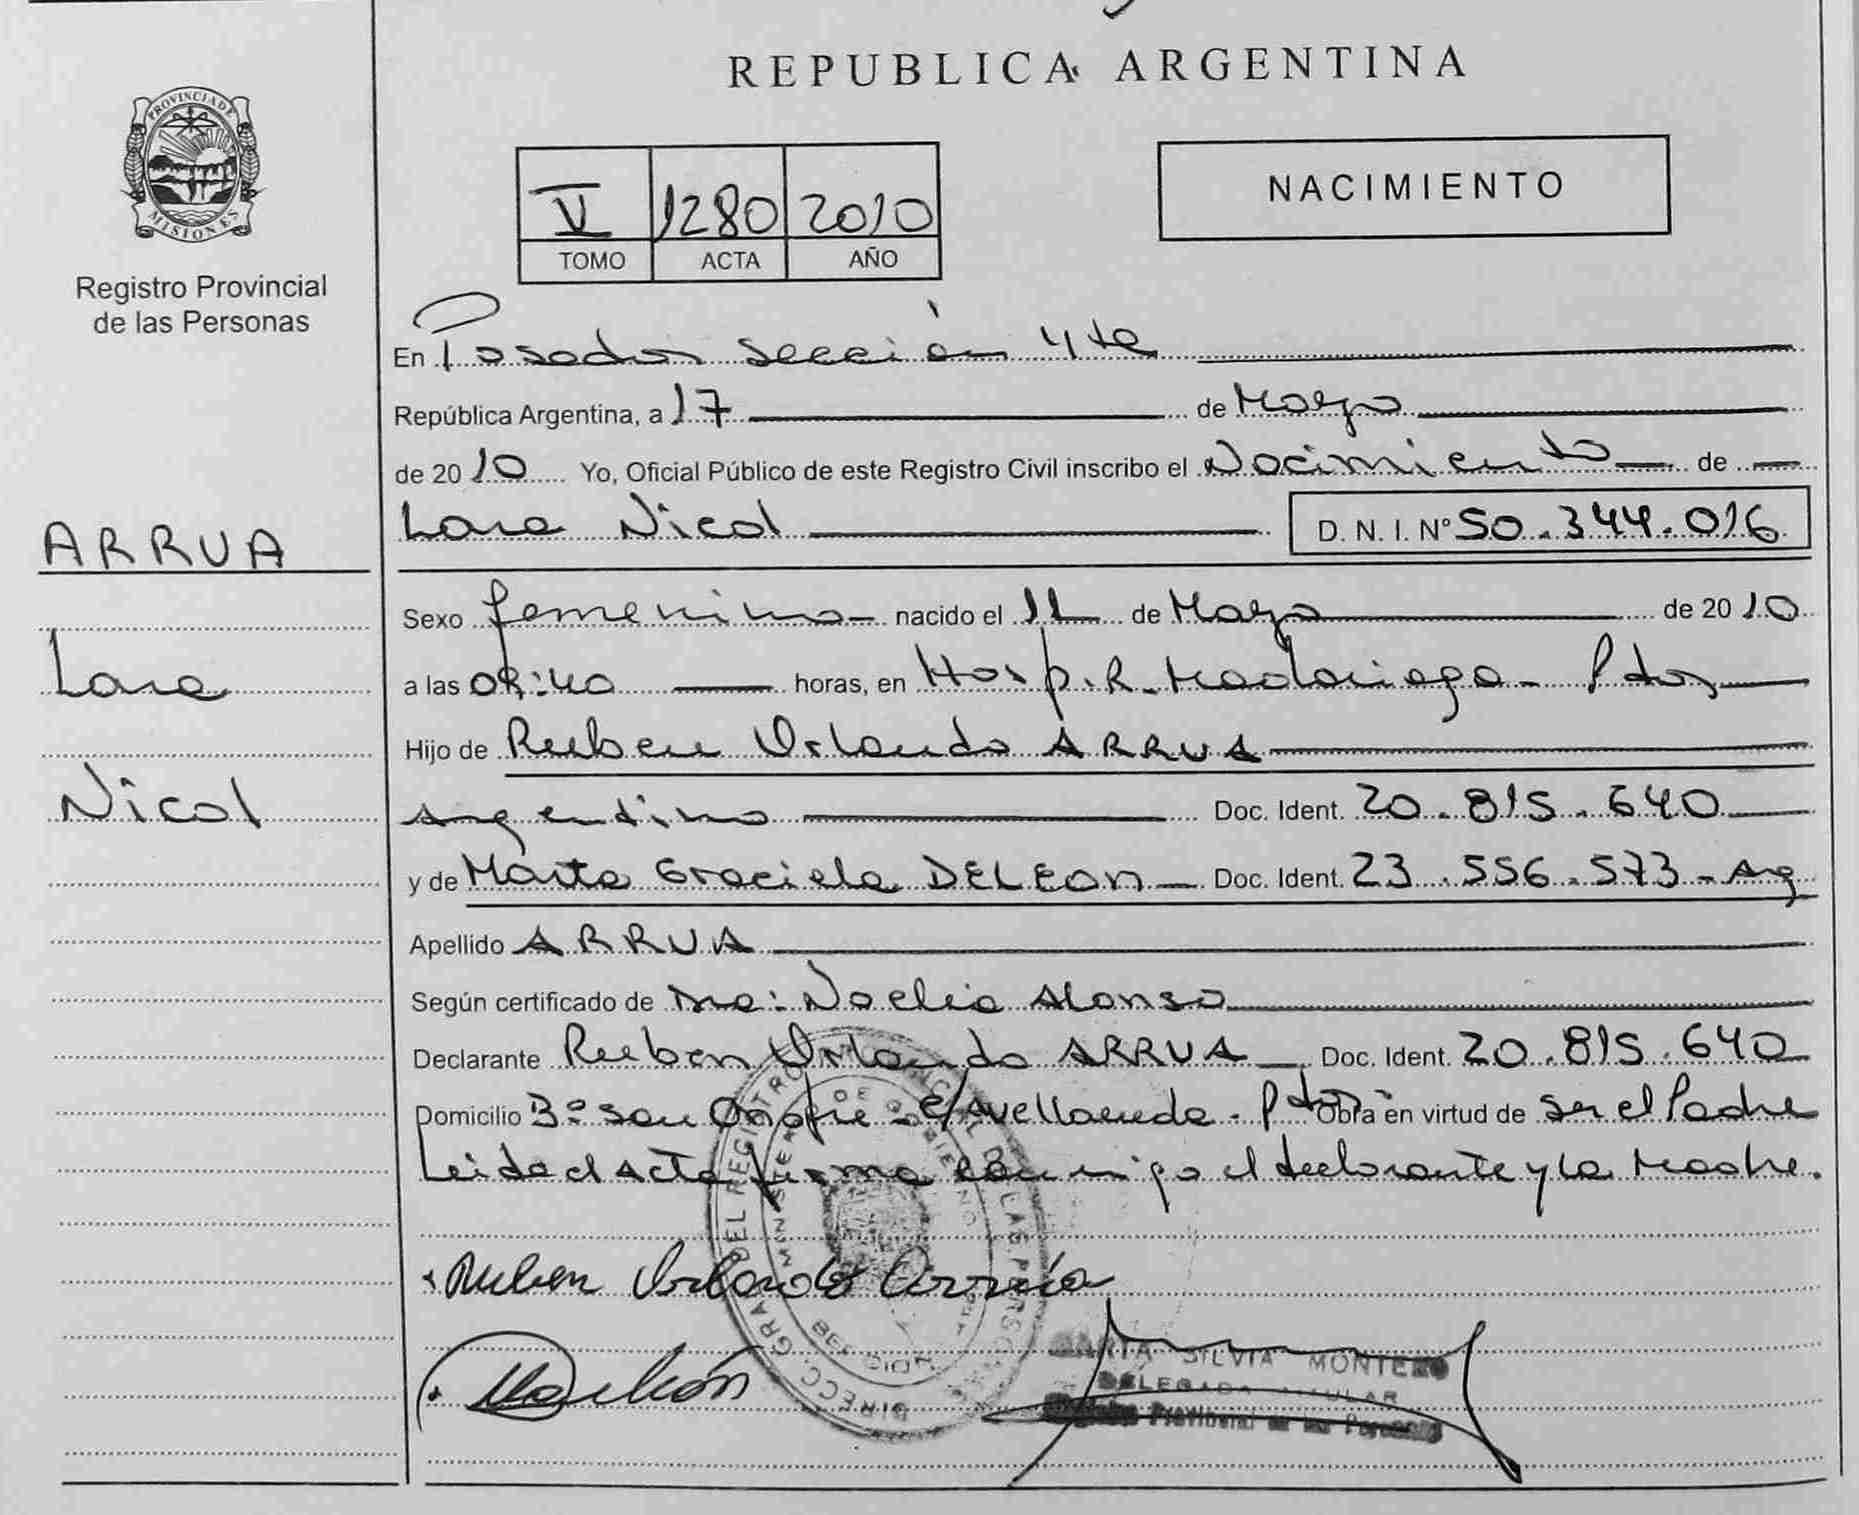 REPUBLICA ARGENTINA
PROVINCIA DE
MISIONES
Registro Provincial
de las Personas
V 1280 2010
TOMO ACTA AÑO
NACIMIENTO
En Posadas Sección 4ta
República Argentina, a 17 de Marzo
de 2010 Yo, Oficial Público de este Registro Civil inscribo el Nacimiento de
Lara Nicol D. N. I. Nº 50.344.016
ARRUA
Lara
Nicol
Sexo femenino nacido el 11 de Marzo de 2010
a las 08:40 horas, en Hosp. R. Madariaga - Pdas
Hijo de Ruben Orlando ARRUA
argentino Doc. Ident. 20.815.640
y de Marta Graciela DELEON Doc. Ident. 23.556.573 - Arg
Apellido ARRUA
Según certificado de Dra: Noelia Alonso
Declarante Ruben Orlando ARRUA Doc. Ident. 20.815.640
Domicilio Bº San Onofre - c/ Avellaneda - Pdas Obra en virtud de ser el Padre
Leida el Acta firma conmigo el declarante y la Madre.
Ruben Orlando Arrúa
MARIA SILVIA MONTERO
DELEGADA TITULAR
Provincial de las Personas